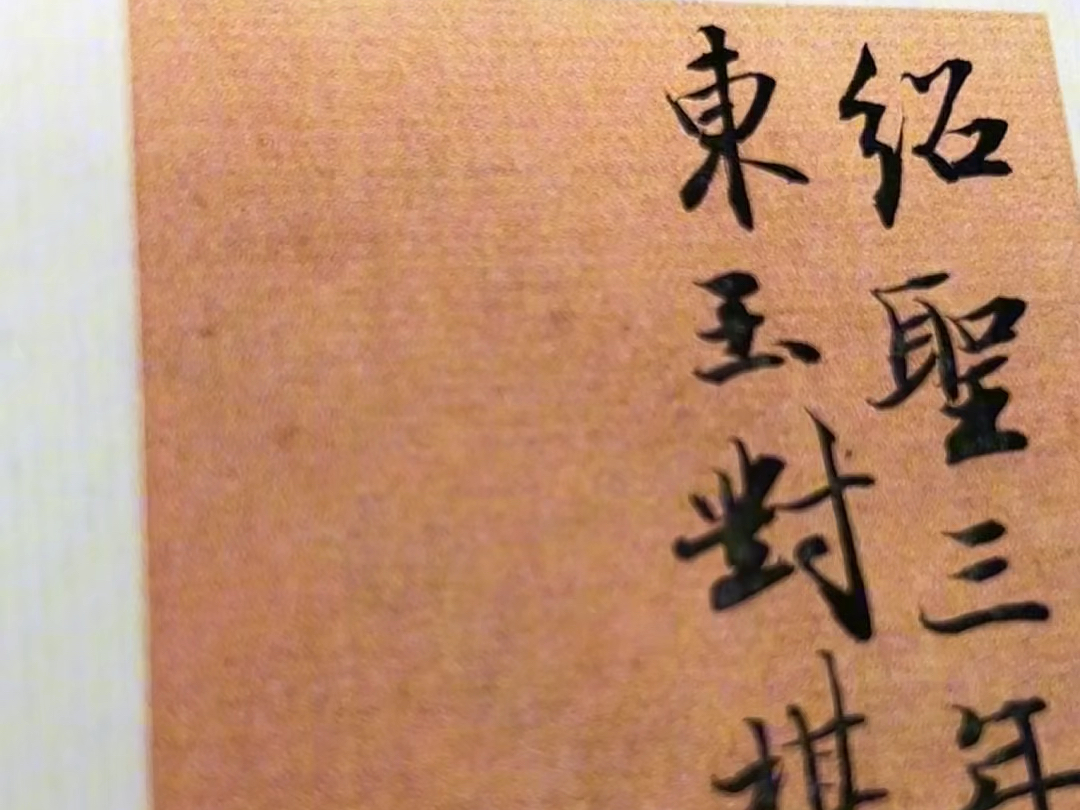 紹聖三年
東玉對棋